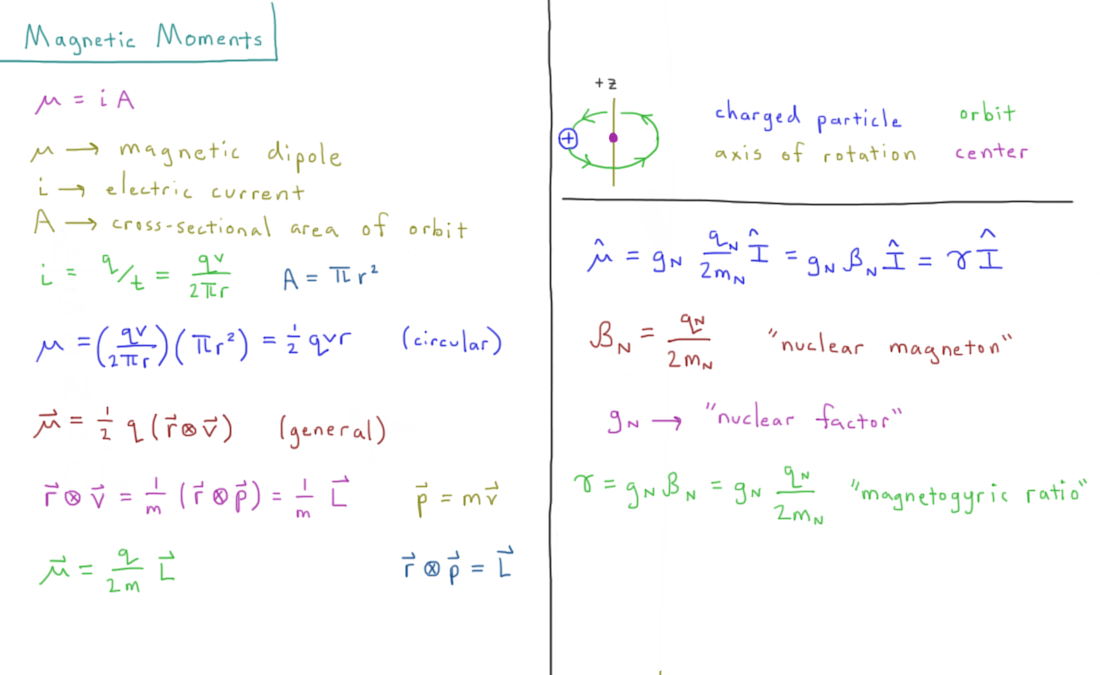 Magnetic Moments
μ = i A
μ → magnetic dipole
i → electric current
A → cross-sectional area of orbit
i = q/t = qv/2πr    A = πr²
μ = (qv/2πr)(πr²) = ½ qvr    (circular)
μ⃗ = ½ q (r⃗ ⊗ v⃗)    (general)
r⃗ ⊗ v⃗ = 1/m (r⃗ ⊗ p⃗) = 1/m L⃗    p⃗ = mv⃗
μ⃗ = q/2m L⃗    r⃗ ⊗ p⃗ = L⃗
+z
+
charged particle    orbit
axis of rotation    center
μ̂ = g_N q_N/2m_N Î = g_N β_N Î = γ Î
β_N = q_N/2m_N    "nuclear magneton"
g_N → "nuclear factor"
γ = g_N β_N = g_N q_N/2m_N    "magnetogyric ratio"